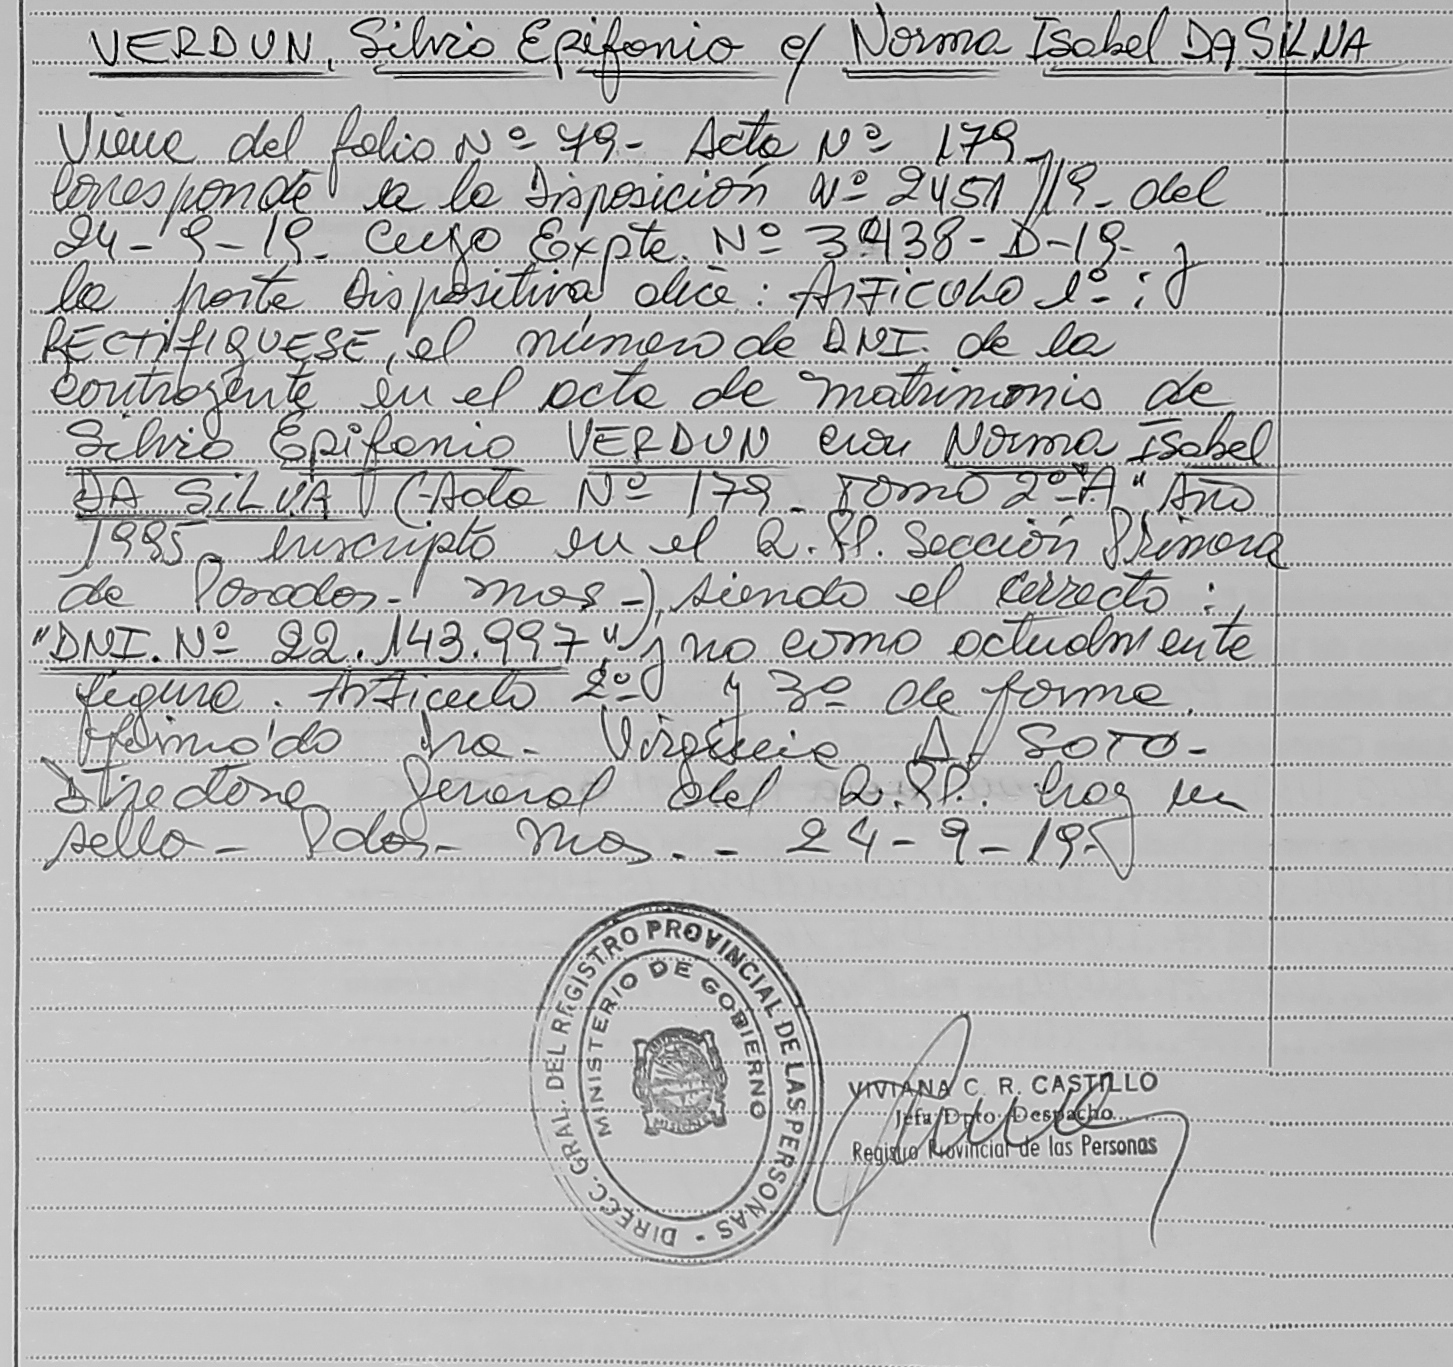 VERDUN, Silvio Epifanio c/ Norma Isabel DA SILVA
Viene del folio Nº 79- Acta Nº 179-
Corresponde a la Disposición Nº 2451/19- del
24-9-19- Cuyo Expte. Nº 3438-D-19- y
la parte dispositiva dice: ARTICULO 1º:
RECTIFIQUESE, el número de DNI. de la
contrayente en el acta de matrimonio de
Silvio Epifanio VERDUN con Norma Isabel
DA SILVA (Acta Nº 179- Tomo 2º "A" Año
1995- inscripto en el R.PP. Sección Primera
de Posadas- Mnes-), siendo el correcto:
"DNI. Nº 22.143.997" y no como actualmente
figura. Artículo 2º y 3º de forma.
Firmado Dra- Virginia A. SOTO-
Directora General del R.PP. hay un
sello- Pdas- Mnes.- 24-9-19-
DIRECC. GRAL. DEL REGISTRO PROVINCIAL DE LAS PERSONAS -
MINISTERIO DE GOBIERNO
MISIONES
VIVIANA C. R. CASTILLO
Jefa Dpto Despacho
Registro Provincial de las Personas